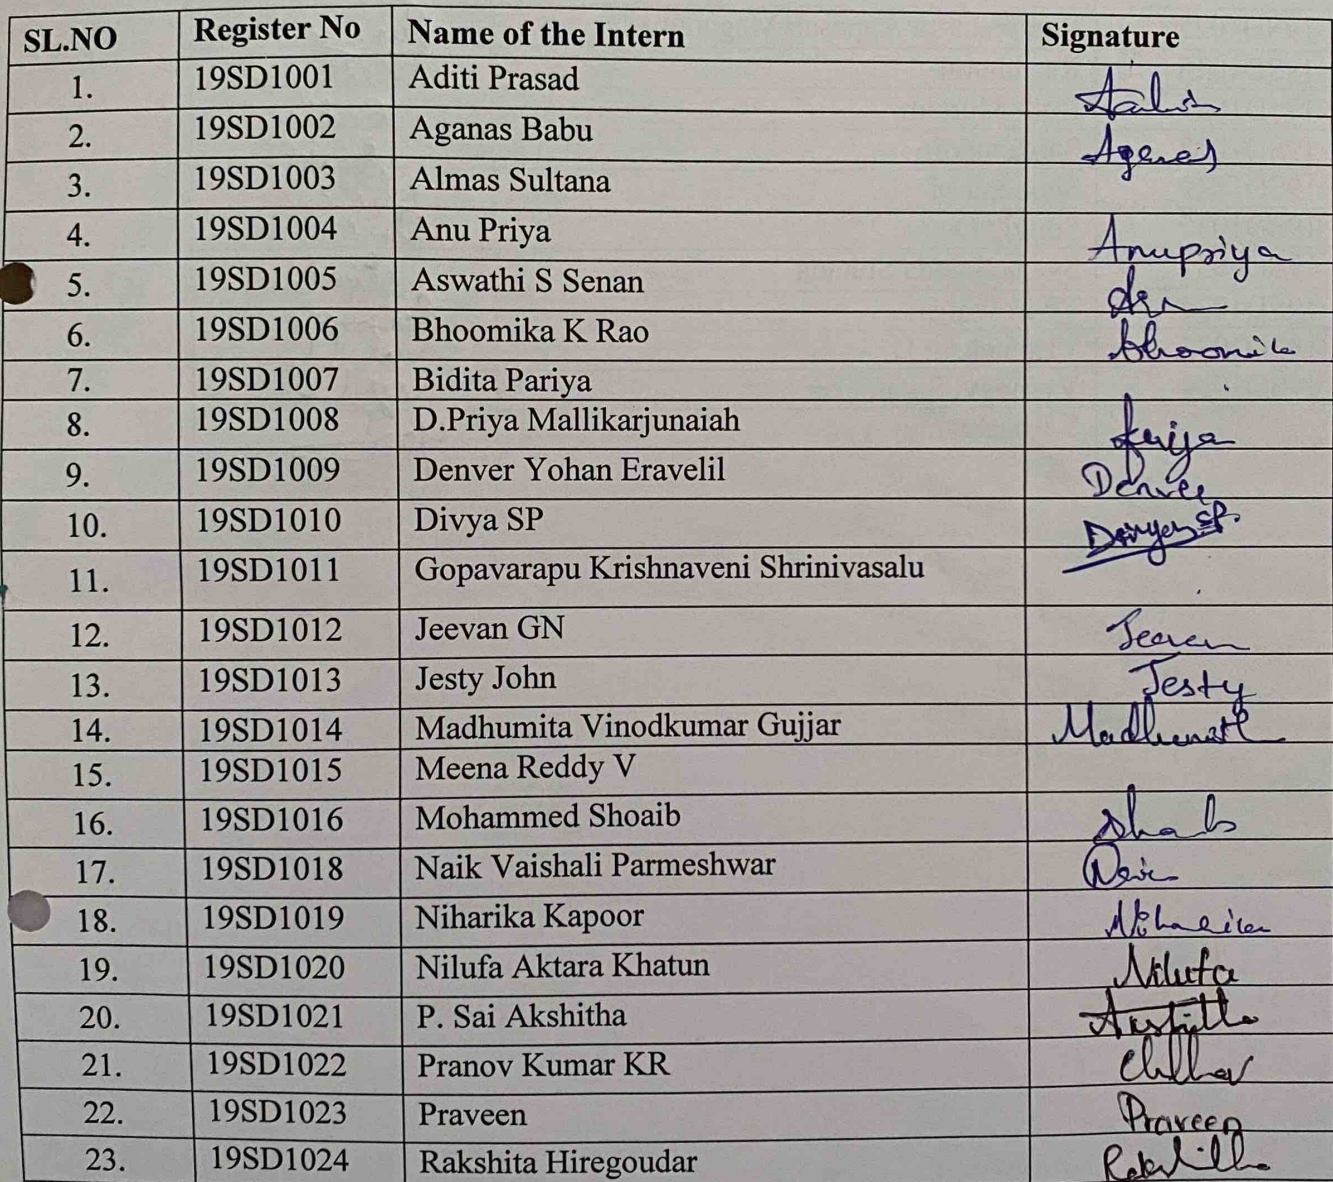 SL.NO Register No Name of the Intern Signature
1. 19SD1001 Aditi Prasad
2. 19SD1002 Aganas Babu Aganas
3. 19SD1003 Almas Sultana
4. 19SD1004 Anu Priya Anupriya
5. 19SD1005 Aswathi S Senan
6. 19SD1006 Bhoomika K Rao
7. 19SD1007 Bidita Pariya
8. 19SD1008 D.Priya Mallikarjunaiah Priya
9. 19SD1009 Denver Yohan Eravelil Denver
10. 19SD1010 Divya SP Divya SP.
11. 19SD1011 Gopavarapu Krishnaveni Shrinivasalu
12. 19SD1012 Jeevan GN Jeevan
13. 19SD1013 Jesty John Jesty
14. 19SD1014 Madhumita Vinodkumar Gujjar
15. 19SD1015 Meena Reddy V
16. 19SD1016 Mohammed Shoaib
17. 19SD1018 Naik Vaishali Parmeshwar
18. 19SD1019 Niharika Kapoor Niharika
19. 19SD1020 Nilufa Aktara Khatun Nilufa
20. 19SD1021 P. Sai Akshitha
21. 19SD1022 Pranov Kumar KR
22. 19SD1023 Praveen Praveen
23. 19SD1024 Rakshita Hiregoudar